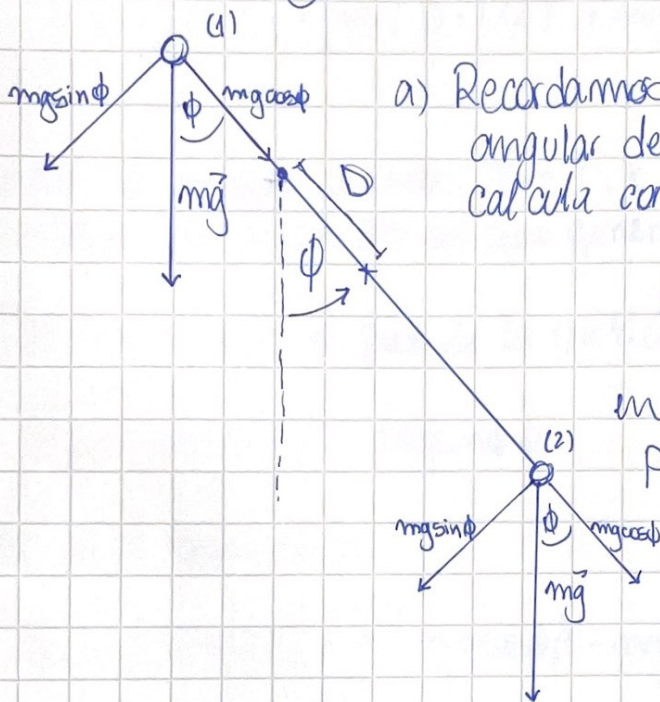 (1)
mg sinϕ
ϕ
mg cosϕ
mg⃗
a) Recordamos
angular de
calcula con
D
ϕ
m
(2)
mg sinϕ
ϕ
mg cosϕ
mg⃗